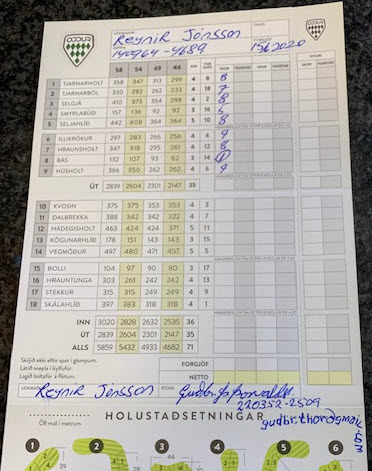 ODDUR
LEIKMAÐUR
Reynir Jónsson
140964-4689
FORGJÖF
1562020
ODDUR
58 54 49 46 PAR
SKOR PUNKTAR SKOR PUNKTAR
1 TJARNARHOLT 358 347 313 299 4 8 8
2 TJARNARBÓL 330 282 262 233 4 18 7
3 SELGJÁ 410 373 354 298 4 2 8
4 SMYRLABÚÐ 157 136 3 16
5 SELJAHLÍÐ 442 408 364 364 5 10 8
6 ILLIKRÓKUR 297 283 266 256 4 4 9
7 HRAUNSHOLT 347 318 295 261 4 12 8
8 BÁS 132 107 93 82 3 14
9 HÚSHOLT 366 350 262 262 4 6 9
ÚT 2839 2604 2301 2147 35
10 KVOSIN 375 375 353 353 4 3
11 DALBREKKA 388 342 342 322 4 7
12 HÁDEGISHOLT 463 424 424 371 5 11
13 KÖGUNARHLÍÐ 178 151 143 143 3 15
14 VEGMÖÐUR 497 480 471 457 5 5
15 BOLLI 104 97 90 80 3 17
16 HRAUNTUNGA 303 261 242 242 4 13
17 STEKKUR 315 315 249 249 4 9
18 SKÁLAHLÍÐ 397 383 318 318 4 1
INN 3020 2828 2632 2535 36
ÚT 2839 2604 2301 2147 35
ALLS 5859 5432 4933 4682 71
Skiljið ekki eftir spor í glompum.
Látið snepla í kylluför.
Lagið boltaför á flötum.
FORGJÖF
NETTO
Reynir Jónsson
RITARI
220352-2509
HOLUSTAÐSETNINGAR
Öll mál í metrum
1 2 3 4 5 6